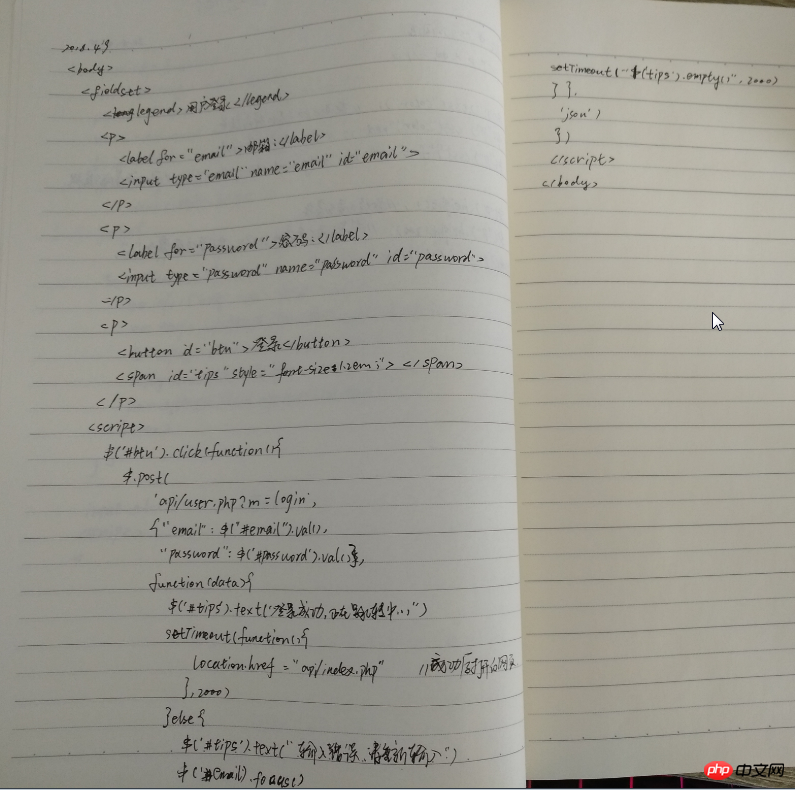 2018.4.9
<body>
<fieldset>
<legend>用户登录</legend>
<p>
<label for="email">邮箱:</label>
<input type="email" name="email" id="email">
</p>
<p>
<label for="password">密码:</label>
<input type="password" name="password" id="password">
</p>
<p>
<button id="btn">登录</button>
<span id="tips" style="font-size:1.2em;"></span>
</p>
<script>
$('#btn').click(function(){
$.post(
'api/user.php?m=login',
{"email": $("#email").val(),
"password": $('#password').val()},
function(data){
$('#tips').text('登录成功,正在跳转中...")
setTimeout(function(){
location.href = "api/index.php" //成功后打开的网页
},2000)
}else{
$('#tips').text("输入错误,请重新输入")
$('#email).focus()
setTimeout("$('tips').empty()",2000)
} },
'json')
})
</script>
</body>
php 中文网